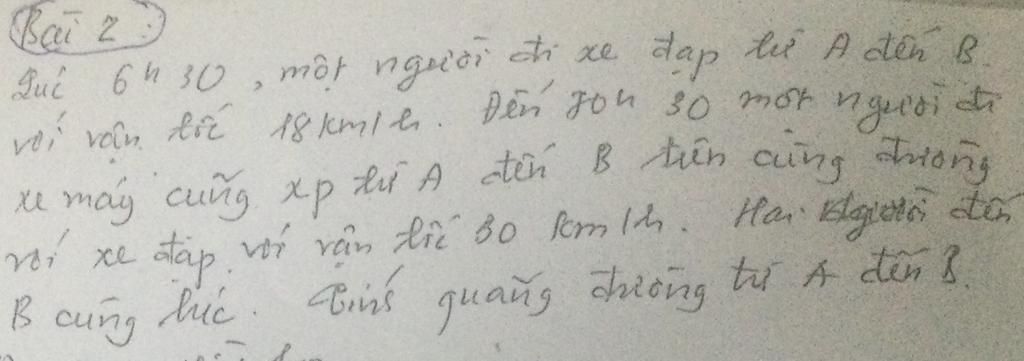 Bài 2:
Lúc 6h 30, một người đi xe đạp từ A đến B.
với vận tốc 18 km/h. Đến 10h 30 một người đi
xe máy cũng xp từ A đến B trên cùng đường
với xe đạp với vận tốc 30 km/h. Hai người đến
B cùng lúc. Tính quãng đường từ A đến B.